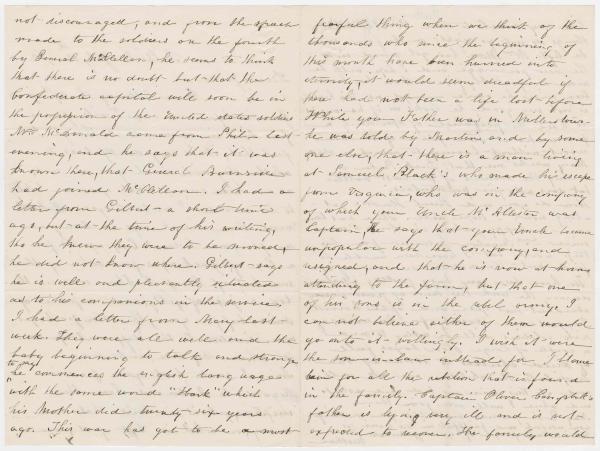 not discouraged, and from the speech
made to the soldiers on the fourth
by General McClellan, he seems to think
that there is no doubt but that the
Confederate capital will soon be in
the possession of the United States soldiers
Mr McDonald came from Phil- last
evening, and he says that it was
known there, that General Burnside
had joined McClellan. I had a
letter from Gilbert a short time
ago, but at the time of his writing,
tho he knew they were to be moved,
he did not know where. Gilbert says
he is well and pleasantly situated
as to his companions in the service.
I had a letter from Mary last
week. They were all well and the
baby beginning to talk and strange
to say he commences the english language
"with the same word "Hark" which
his Mother did twenty six years
ago. This war has got to be a most
fearful thing when we think of the
thousands who since the beginning of
this month have been hurried into
eternity, it would seem dreadful if
there had not been a life lost before
While your Father was in
he was told by Martin, and by some
one else, that there is a man living
at Samuel Black's who made his escape
from Virginia, who was in the company
of which your Uncle McAllister was
Captain, he says that your Uncle became
unpopular with the company, and
resigned, and that he is now at home
attending to the farm, but that one
of his sons is in the rebel army. I
can not believe either of them would
go into it willingly. I wish it were
the son in law instead for I blame
him for all the rebelion that is found
in the family. Captain Oliver Campbell's
father is lying very ill and is not
expected to recover. The family would